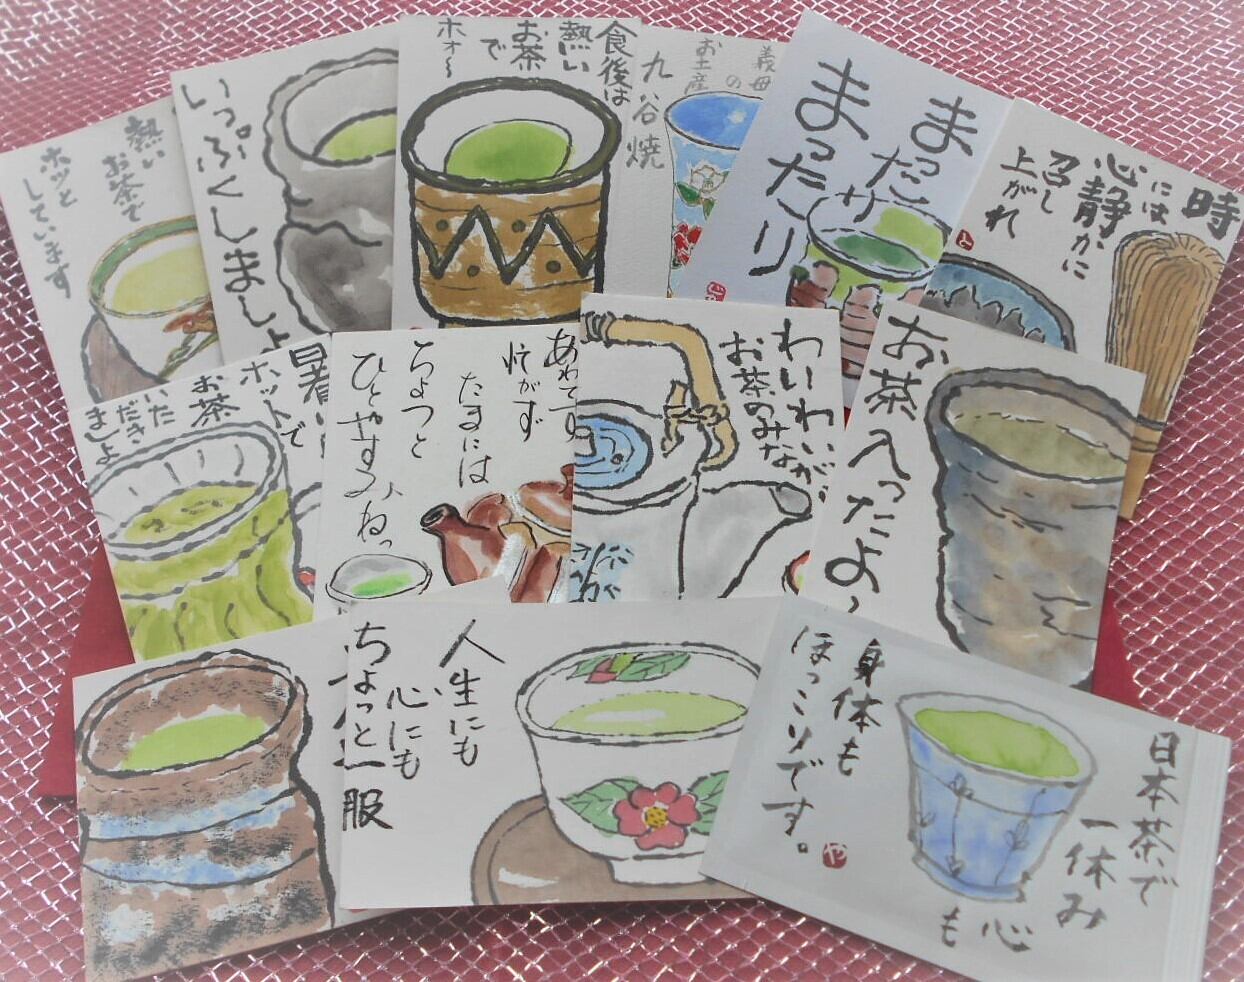 熱い
お茶で
ホッと
しています
いっぷくしましょ
食後は
熱い
お茶
で
ホォ〜
義母
の
お土産
九谷焼
まったり
まったり
時
には
心静かに
召し
上がれ
暑い
ホットで
お茶
いた
だき
ましょ
あわてず
忙がず
たまには
ちょっと
ひとやすみ
わいわいがが
お茶のみな
お茶入ったよ〜
人生にも
心にも
ちょっと一服
日本茶で
一休み
心も
身体も
ほっこりです。
や